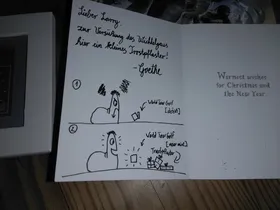 Lieber Larry,
zur Versüßung des Wichtelgrus
hier ein kleines Trostpflaster!
- Goethe
①
World Tour Golf
②
World Tour Golf
Trostpflaster
Warmest wishes
for Christmas and
the New Year